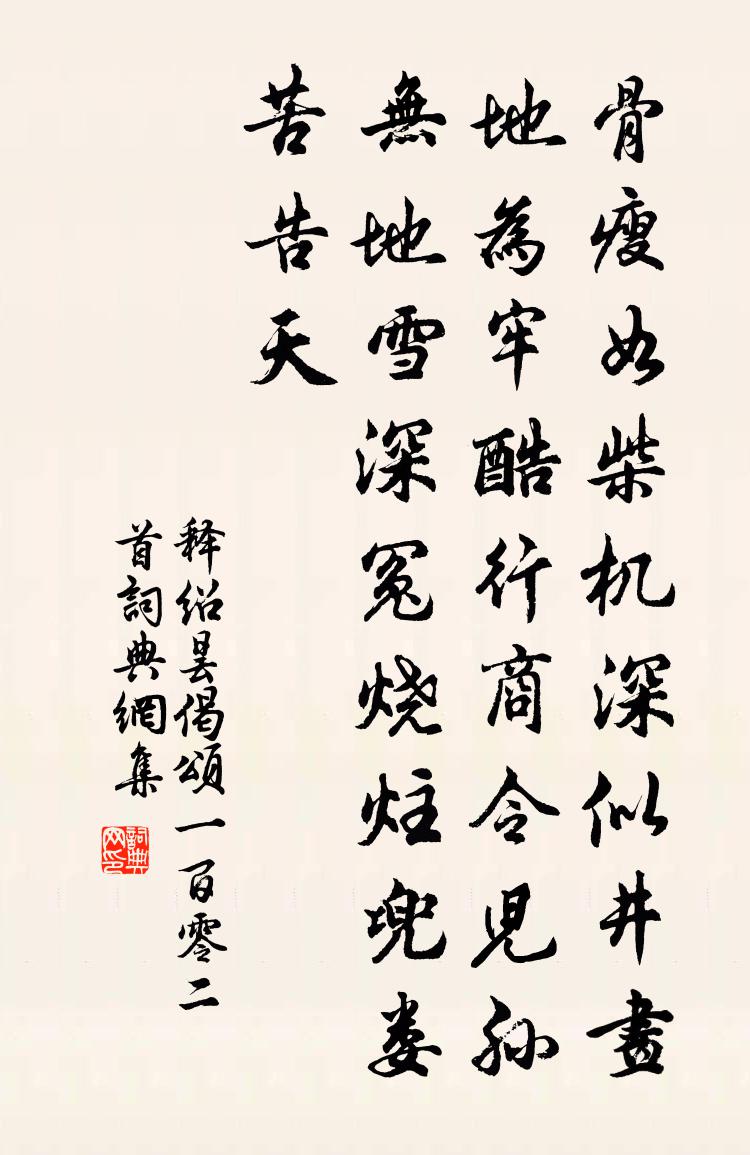 骨瘦如柴机深似井畫
地為牢酷行商令児孙
無地雪深冤烧炷兜娄
苦告天
释绍昙偈頌一百零二
首詞典網集
詞典网印